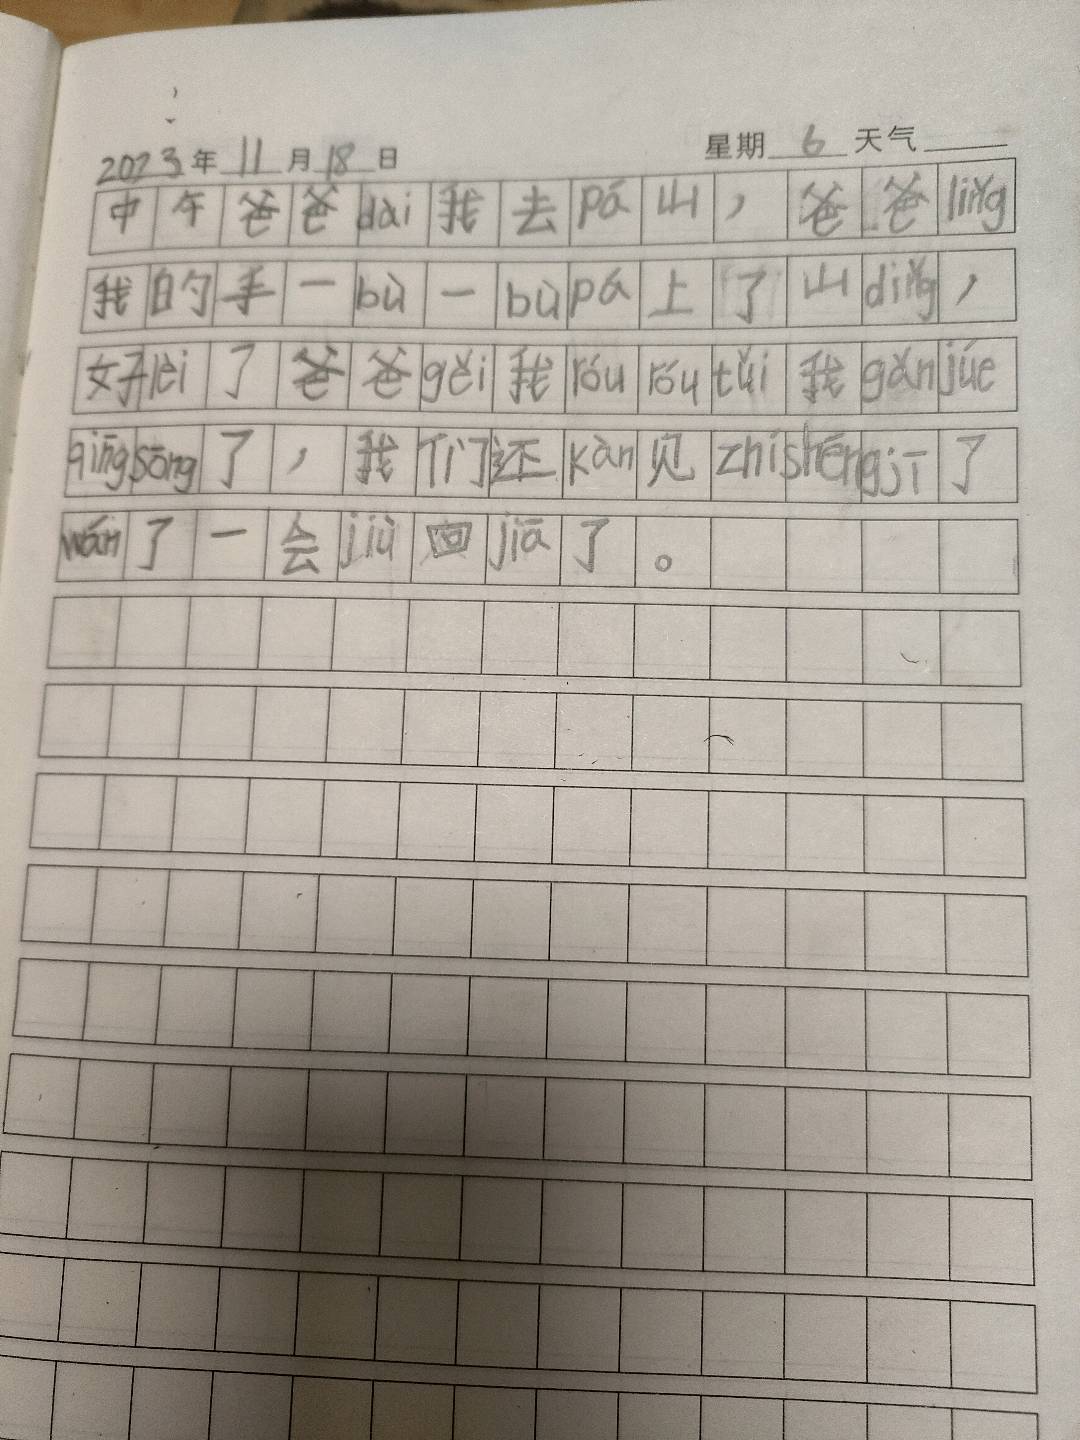 2023年11月18日 星期6天气
中午爸爸dài我去pá山，爸爸lǐng
我的手一bù一bùpá上了山dǐng，
好lèi了爸爸gěi我róuróutuǐ我gǎnjúe
qīngsōng了，我们还kàn见zhíshēngjī了
wán了一会jiù回jiā了。